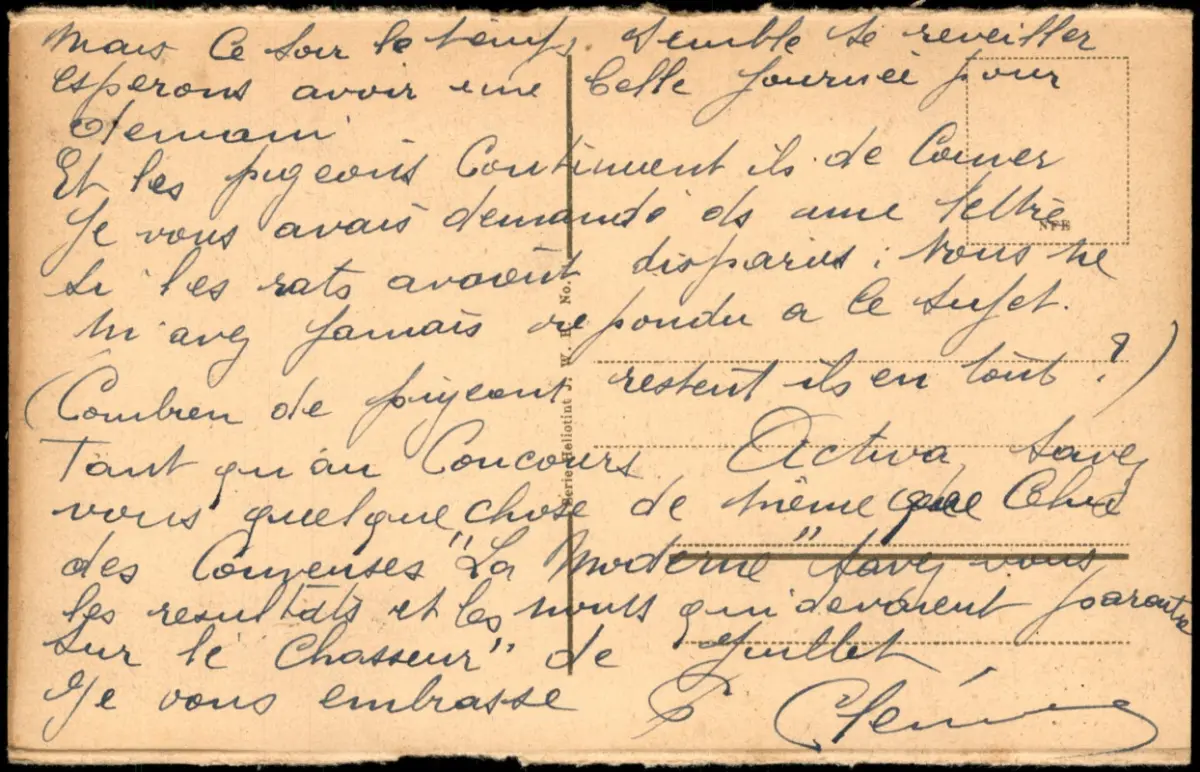 Mais Ce soir le temps semble se reveiller
esperons avoir une belle journée pour
demain
Et les pigeons Continuent ils de Couver
Je vous avais demandé ds une lettre
Si les rats avaient disparus ; Vous ne
m'avez jamais repondu a ce sujet.
(Combien de pigeons restent ils en tout ?)
Tant qu'au Concours Activa, savez
vous quelque chose de même que Celui
des Couveuses "La Moderne" savez vous
les resultats et les noms qui devaient paraitre
Sur le Chasseur" de Juillet
Je vous embrasse
NPH
Serie Heliotint W. No.